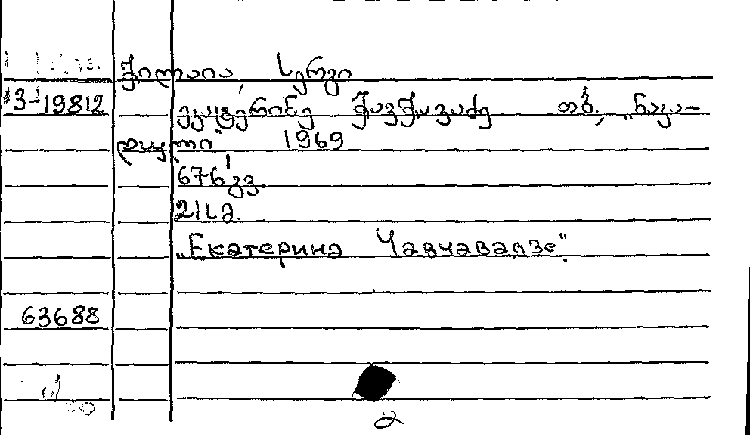 ჭილაია, სერგი
3-19812 ეკატერინე ჭავჭავაძე თბ., „ნაკა-
დული" 1969
676 გვ.
21 სმ.
„Екатерина Чавчавадзе".
63688